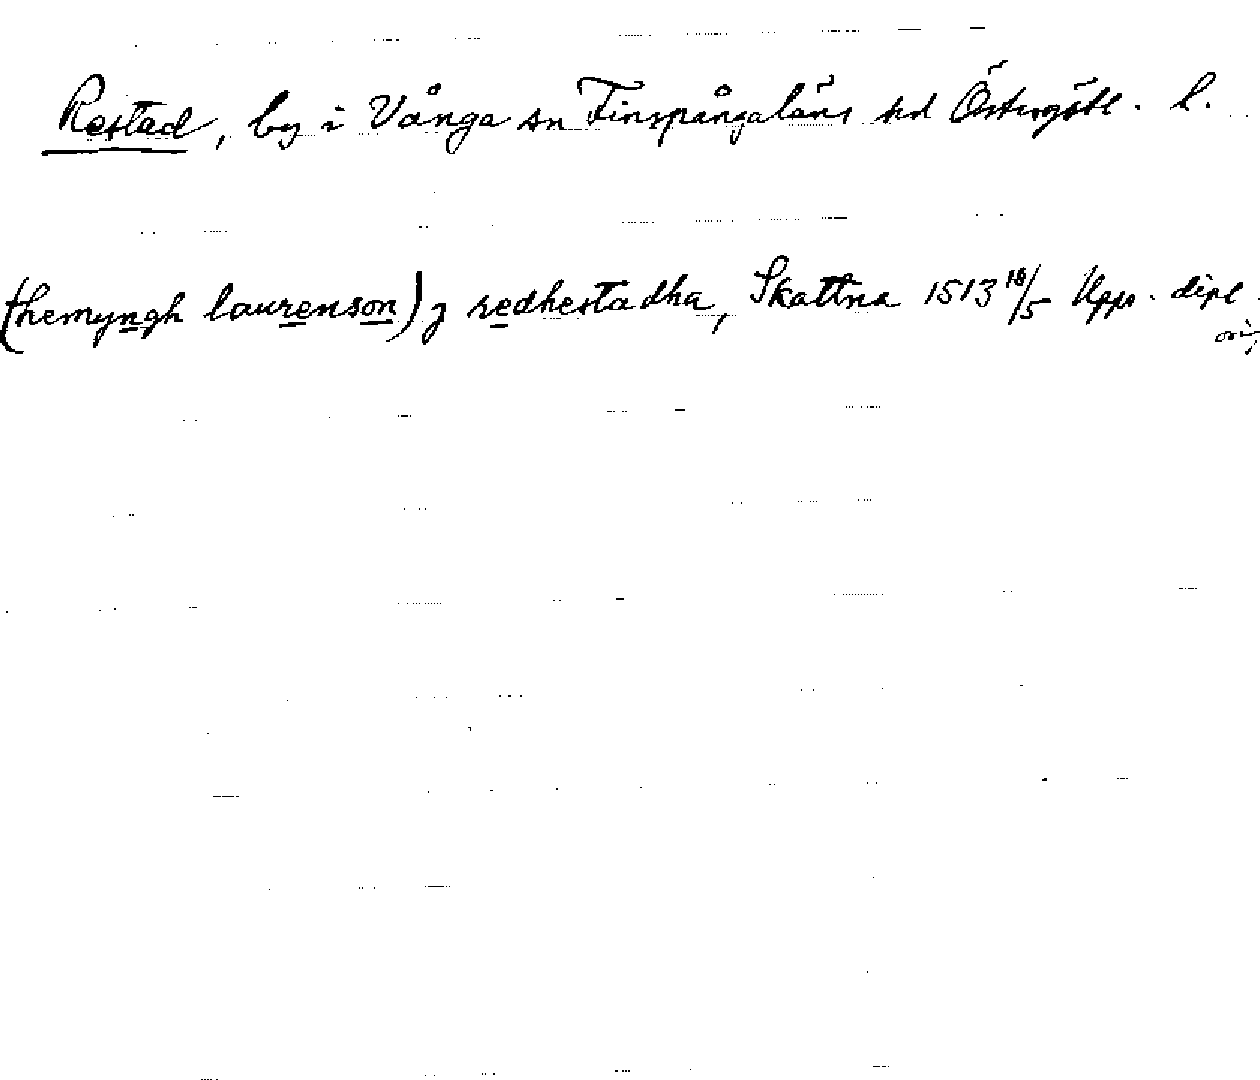 Restad, by i Vånga sn Finspångaläns hd Östergötl. l.
(hemyngh laurenson) j redhestadha, Skattna 1513 18/5 Upps. dipl.
orig